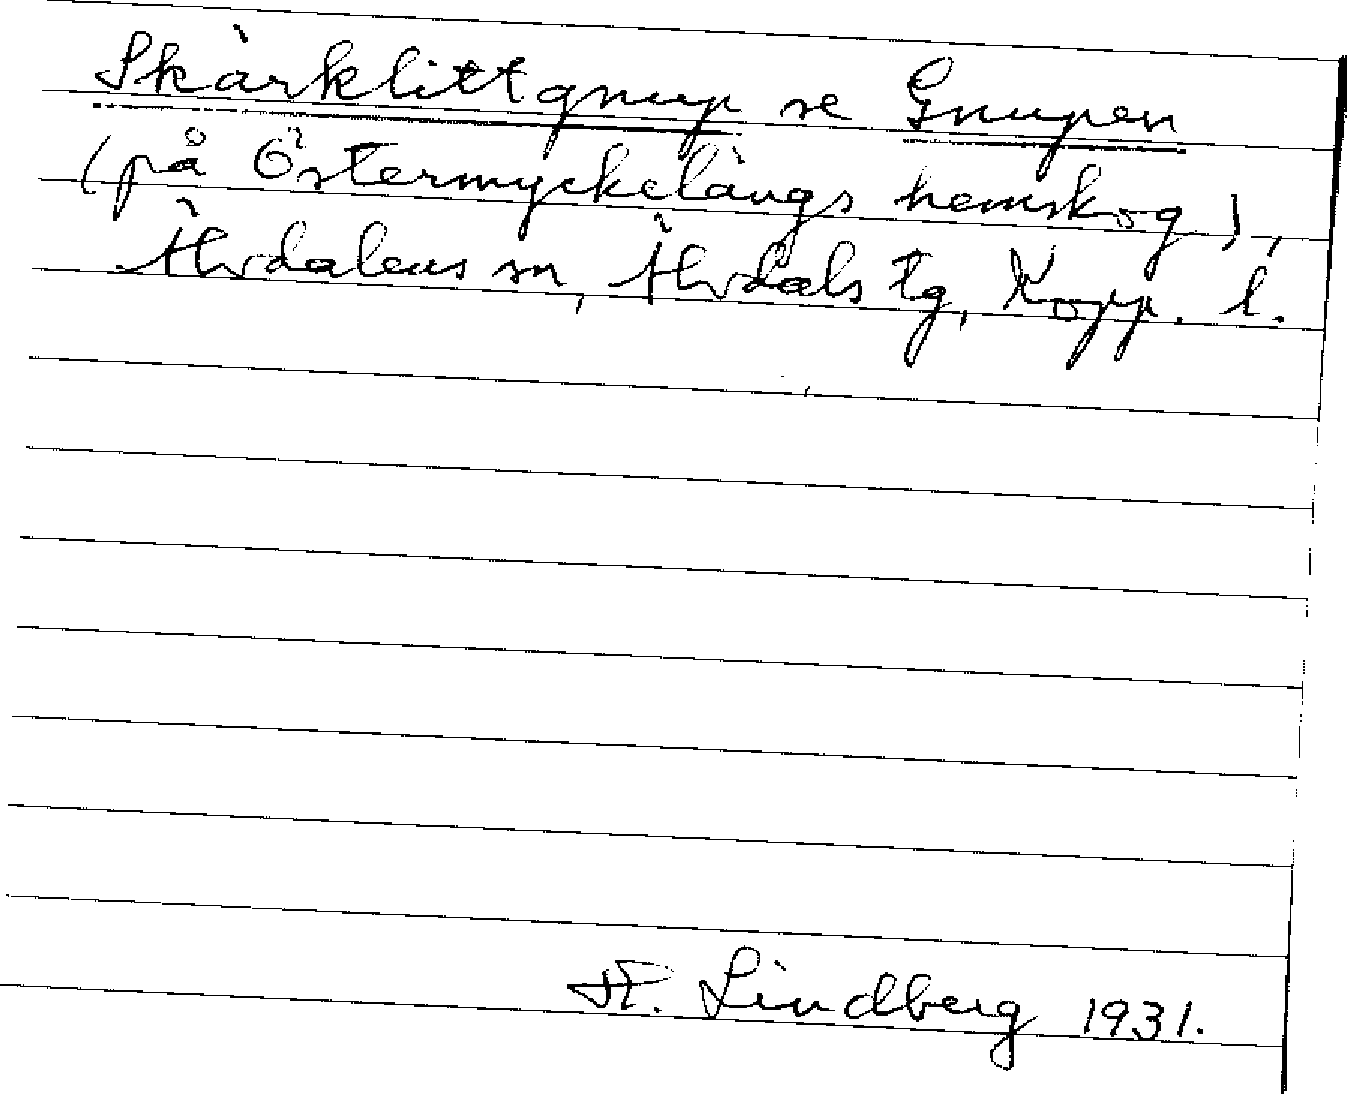 Skärklittgnup se Gnupen
(på Östermyckelängs hemskog),
Älvdalens sn, Älvdals tg, Kopp. l.
K. Lindberg 1931.